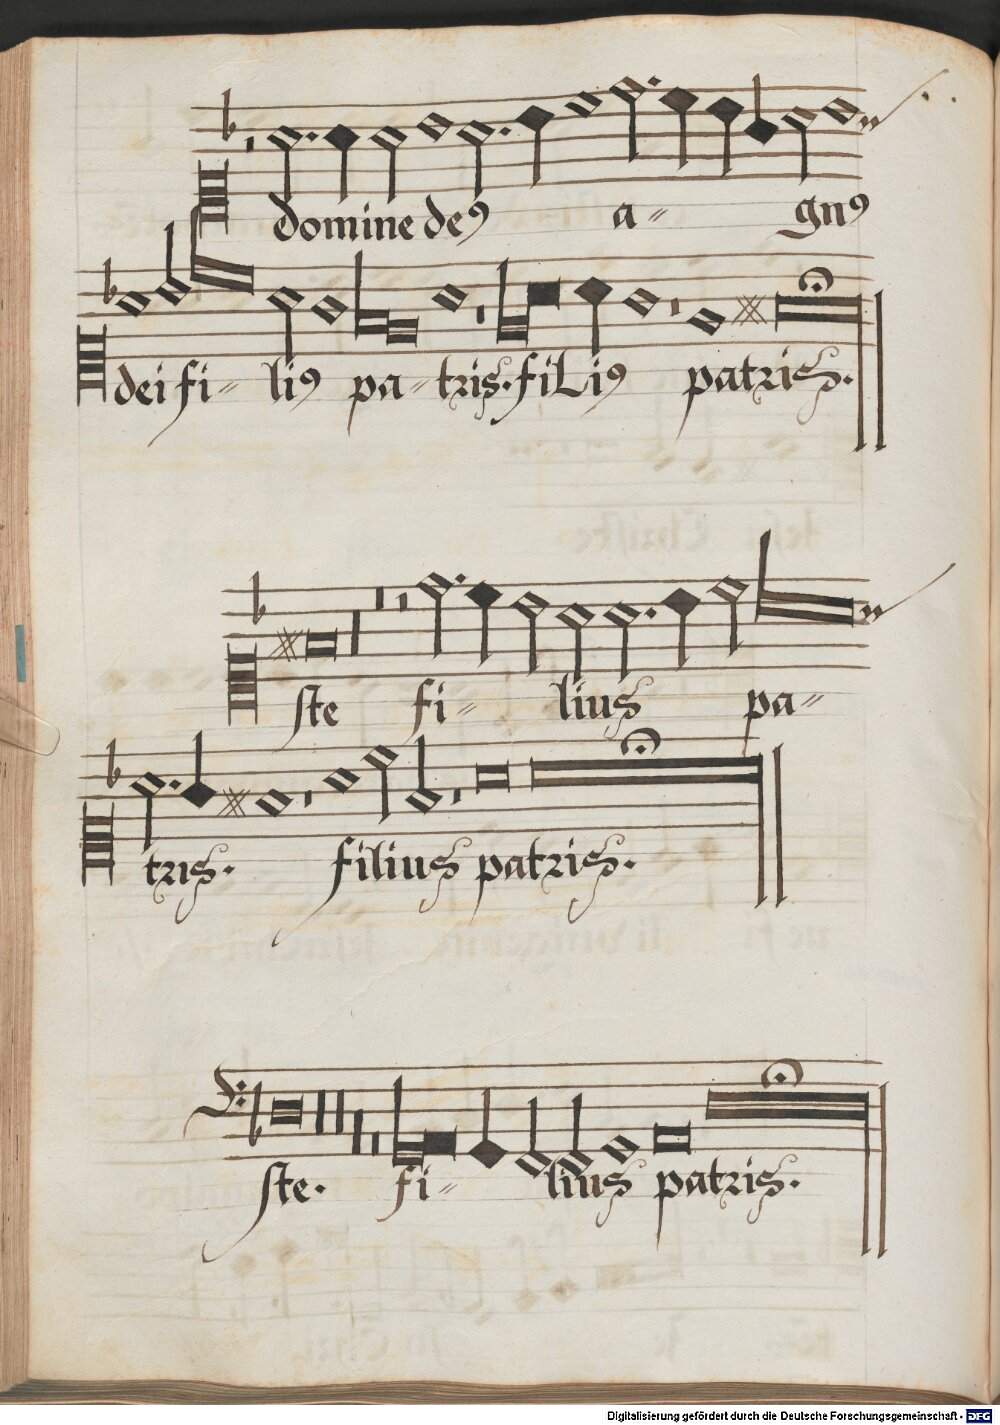 domine deꝰ a〃 gnꝰ
dei fi〃 liꝰ pa〃 tris. filiꝰ patris.
ste fi〃 lius pa〃
tris. filius patris.
ste. fi〃 lius patris.
Digitalisierung gefördert durch die Deutsche Forschungsgemeinschaft - DFG